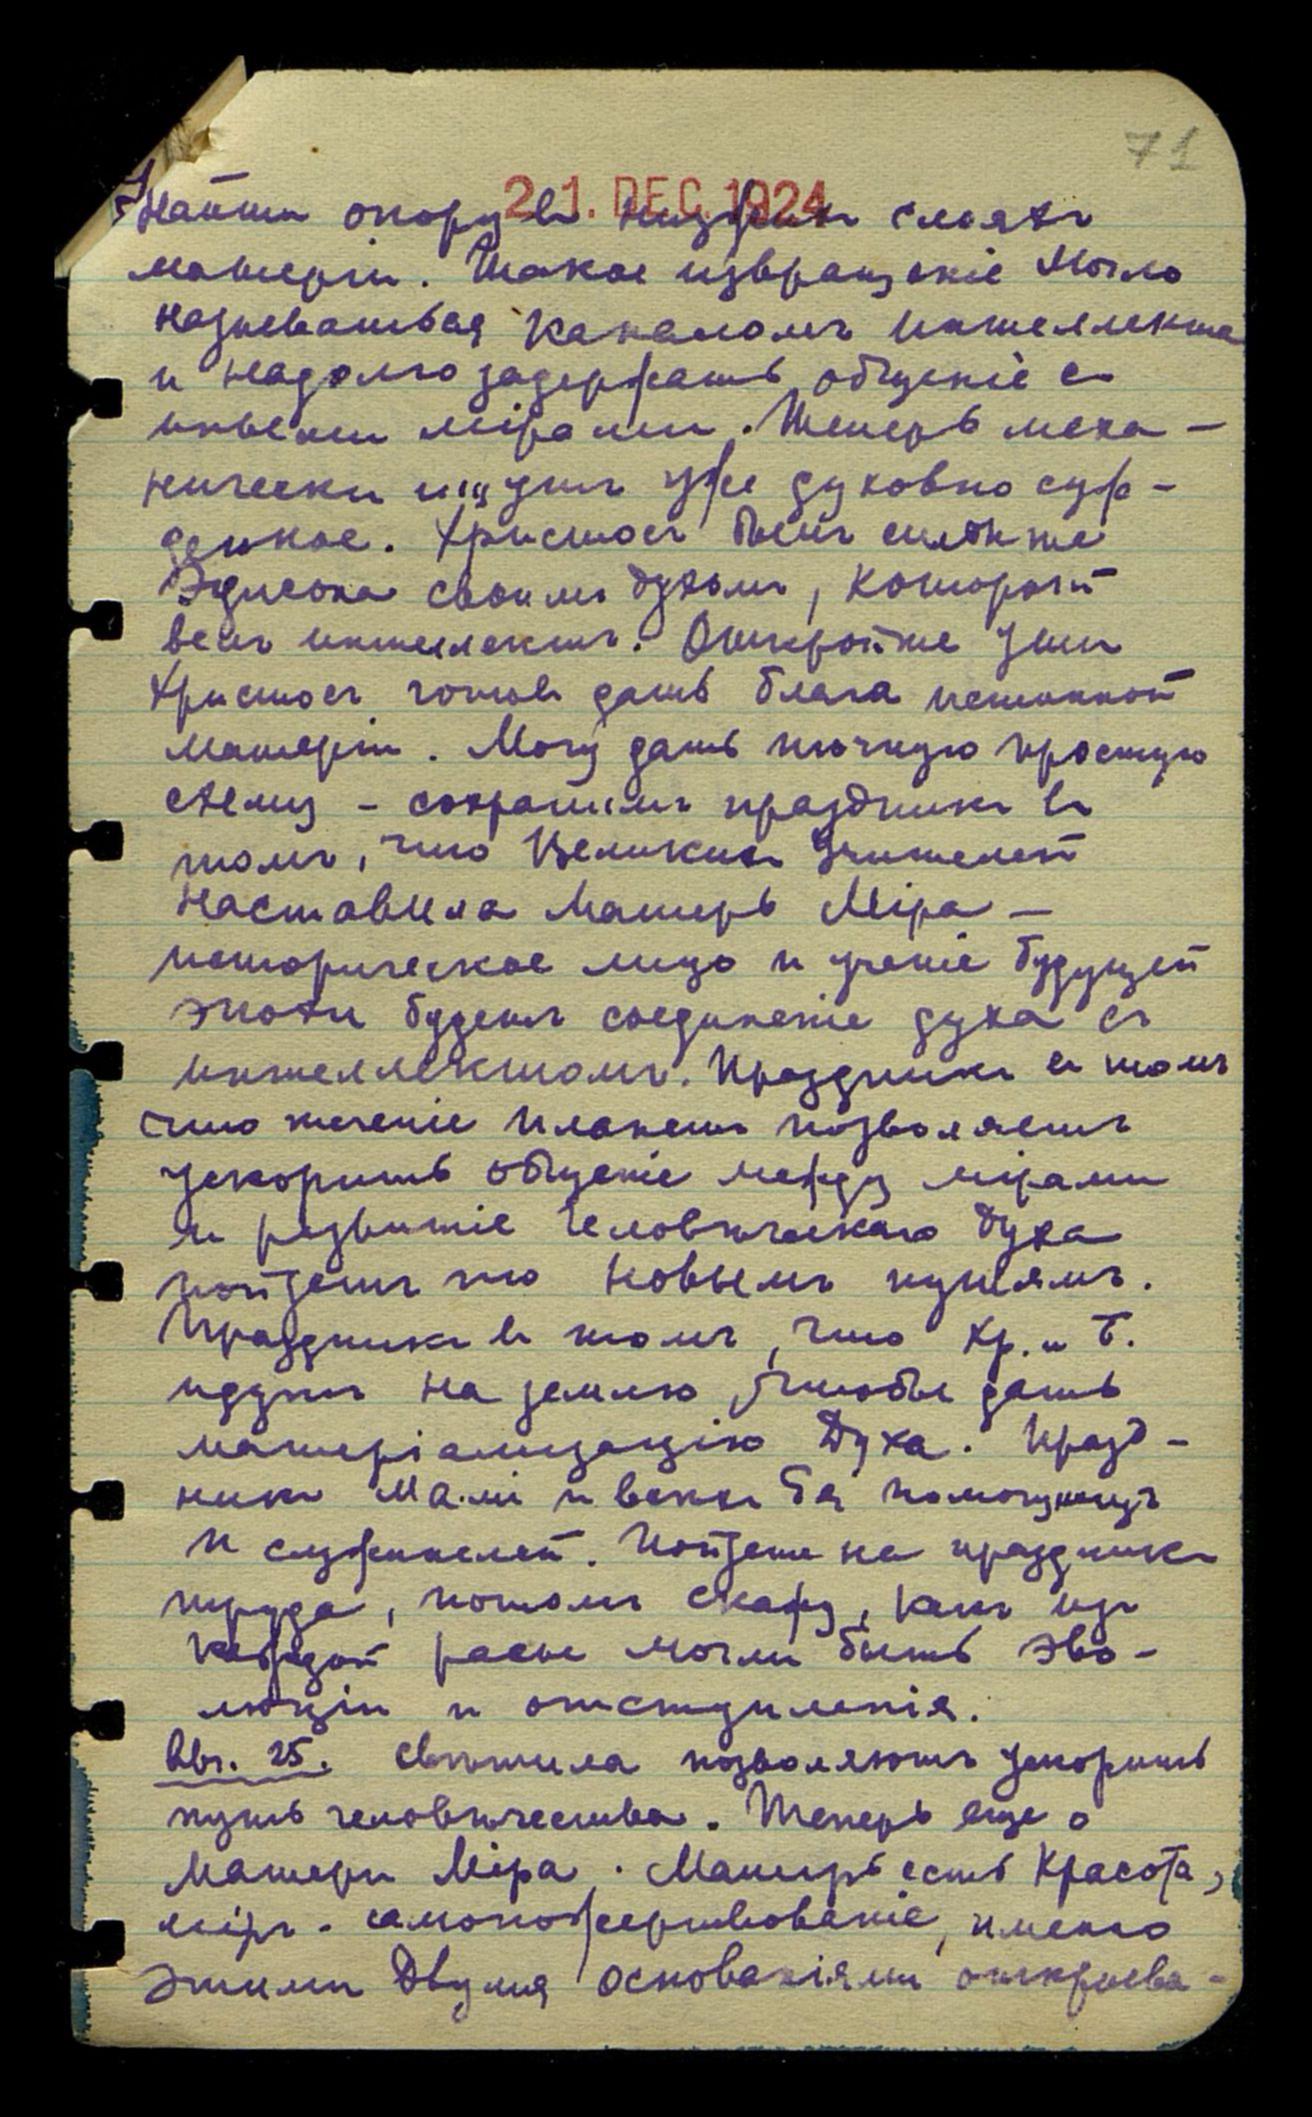 71
21. DEC. 1924
Найти опору въ низшихъ слояхъ
матеріи. Такое извращеніе могло
называться каналомъ интеллекта
и надолго задержать общеніе съ
иными мірами. Теперь меха-
нически ищутъ уже духовно суж-
денное. Христосъ былъ сильнѣе
Эдисона своимъ духомъ, который
весь интеллектъ. Откройте уши
Христосъ готовъ дать блага истинной
матеріи. Могу дать точную простую
схему – сократимъ праздникъ въ
томъ, что Великихъ Учителей
наставила Матерь Міра –
историческое лицо и ученіе будущей
эпохи будетъ соединеніе духа съ
интеллектомъ. Праздникъ въ томъ
что теченіе планетъ позволяетъ
ускорить общеніе между мірами
и развитіе человѣческаго духа
пойдетъ по новымъ путямъ.
Праздникъ въ томъ, что Хр. и Б.
идутъ на землю, чтобы дать
матеріализацію Духа. Празд-
никъ М.а.м. и всѣхъ Бѣ помощницъ
и служителей. Пойдете на праздникъ
труда, потомъ скажу, какъ изъ
каждой расы могли быть эво-
люціи и отступленія.
Авг. 25. Свѣтила позволяютъ ускорить
путь человѣчества. Теперь еще о
Матери Міра. Матерь есть Красота,
міръ - самопожертвованіе, именно
этими двумя основаніями открыва-